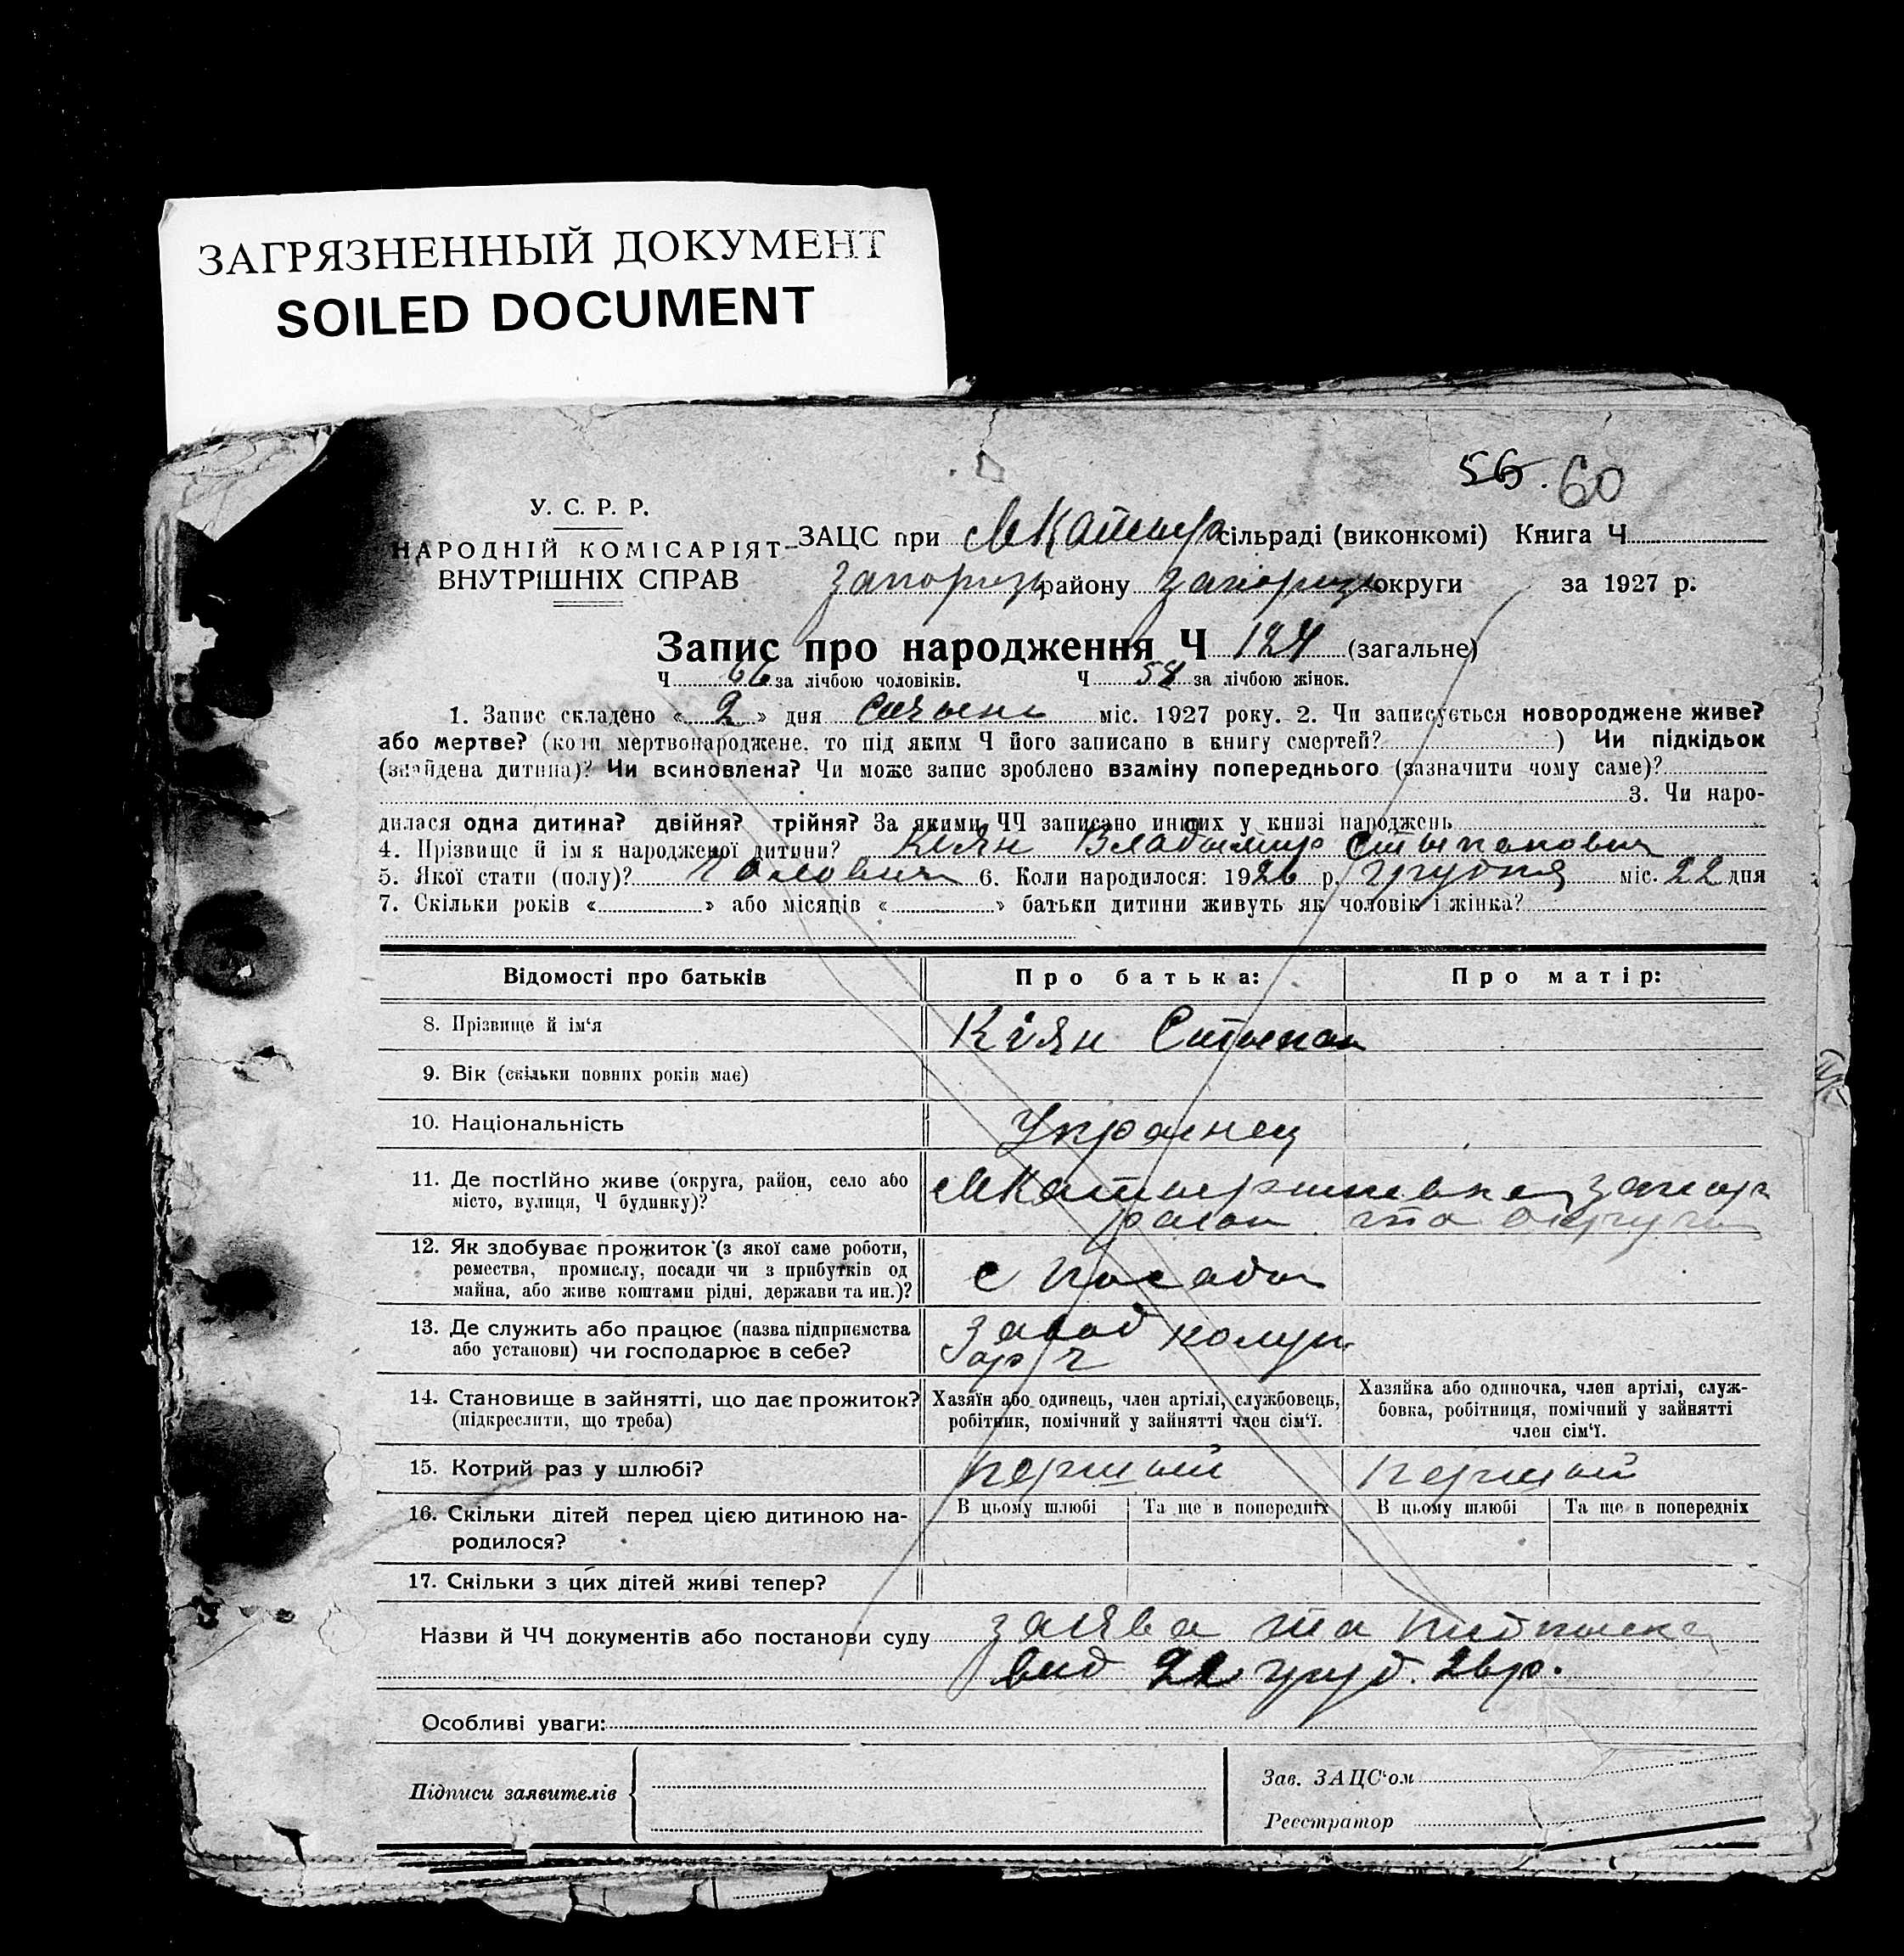 ЗАГРЯЗНЕННЫЙ ДОКУМЕНТ
SOILED DOCUMENT
56. 60
У. С. Р. Р.
НАРОДНІЙ КОМІСАРІЯТ
ВНУТРІШНІХ СПРАВ
ЗАЦС при сільраді (виконкомі) Книга Ч
району округи за 1927 р.
Запис про народження Ч 124 (загальне)
Ч 66 за лічбою чоловіків. Ч 58 за лічбою жінок.
1. Запис складено « 2 » дня міс. 1927 року. 2. Чи записується новороджене живе?
або мертве? (коли мертвонароджене, то під яким Ч його записано в книгу смертей? ) Чи підкідьок
(знайдена дитина)? Чи всиновлена? Чи може запис зроблено взаміну попереднього (зазначити чому саме)?
3. Чи наро-
дилася одна дитина? двійня? трійня? За якими ЧЧ записано инших у книзі народжень
4. Прізвище й ім'я народженої дитини? Кіян Владымир Стыпанович
5. Якої стати (полу)? 6. Коли народилося: 1926 р. грудня міс. 22 дня
7. Скільки років « » або місяців « » батьки дитини живуть як чоловік і жінка?
Відомості про батьків Про батька: Про матір:
8. Прізвище й ім'я Кіян Стыпан
9. Вік (скільки повних років має)
10. Національність Украинец
11. Де постійно живе (округа, район, село або
місто, вулиця, Ч будинку)?
район та округи
12. Як здобуває прожиток (з якої саме роботи,
ремества, промислу, посади чи з прибутків од
майна, або живе коштами рідні, держави та ин.)?
с посади
13. Де служить або працює (назва підприємства
або установи) чи господарює в себе?
завод комун
14. Становище в зайнятті, що дає прожиток?
(підкреслити, що треба)
Хазяїн або одинець, член артілі, службовець,
робітник, помічний у зайнятті член сім'ї.
Хазяйка або одиночка, член артілі, служ-
бовка, робітниця, помічний у зайнятті
член сім'ї.
15. Котрий раз у шлюбі? першый першый
16. Скільки дітей перед цією дитиною на-
родилося?
В цьому шлюбі Та ще в попередніх В цьому шлюбі Та ще в попередніх
17. Скільки з цих дітей живі тепер?
Назви й ЧЧ документів або постанови суду заява та підписка
від 22 груд. 26 р.
Особливі уваги:
Підписи заявителів
Зав. ЗАЦС'ом
Реєстратор